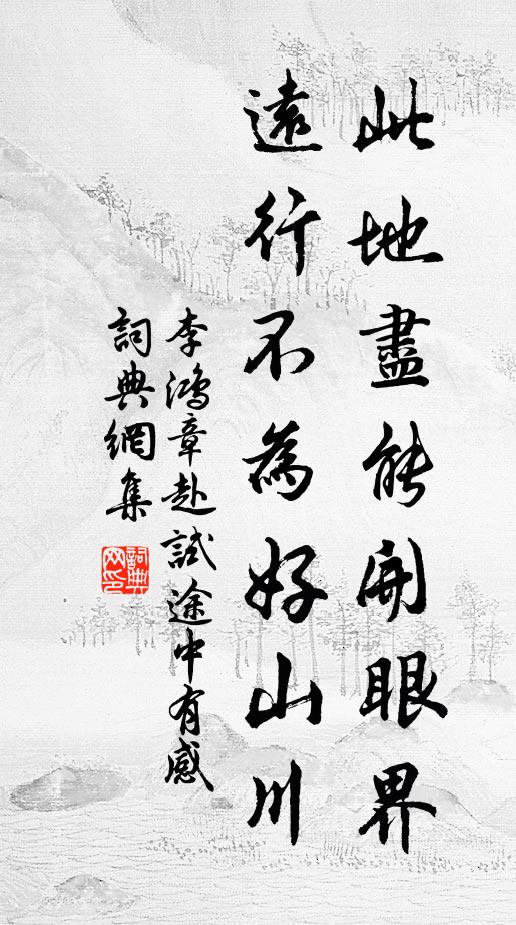 此地盡能開眼界
遠行不為好山川
李鴻章赴試途中有感
詞典網集
詞典網印